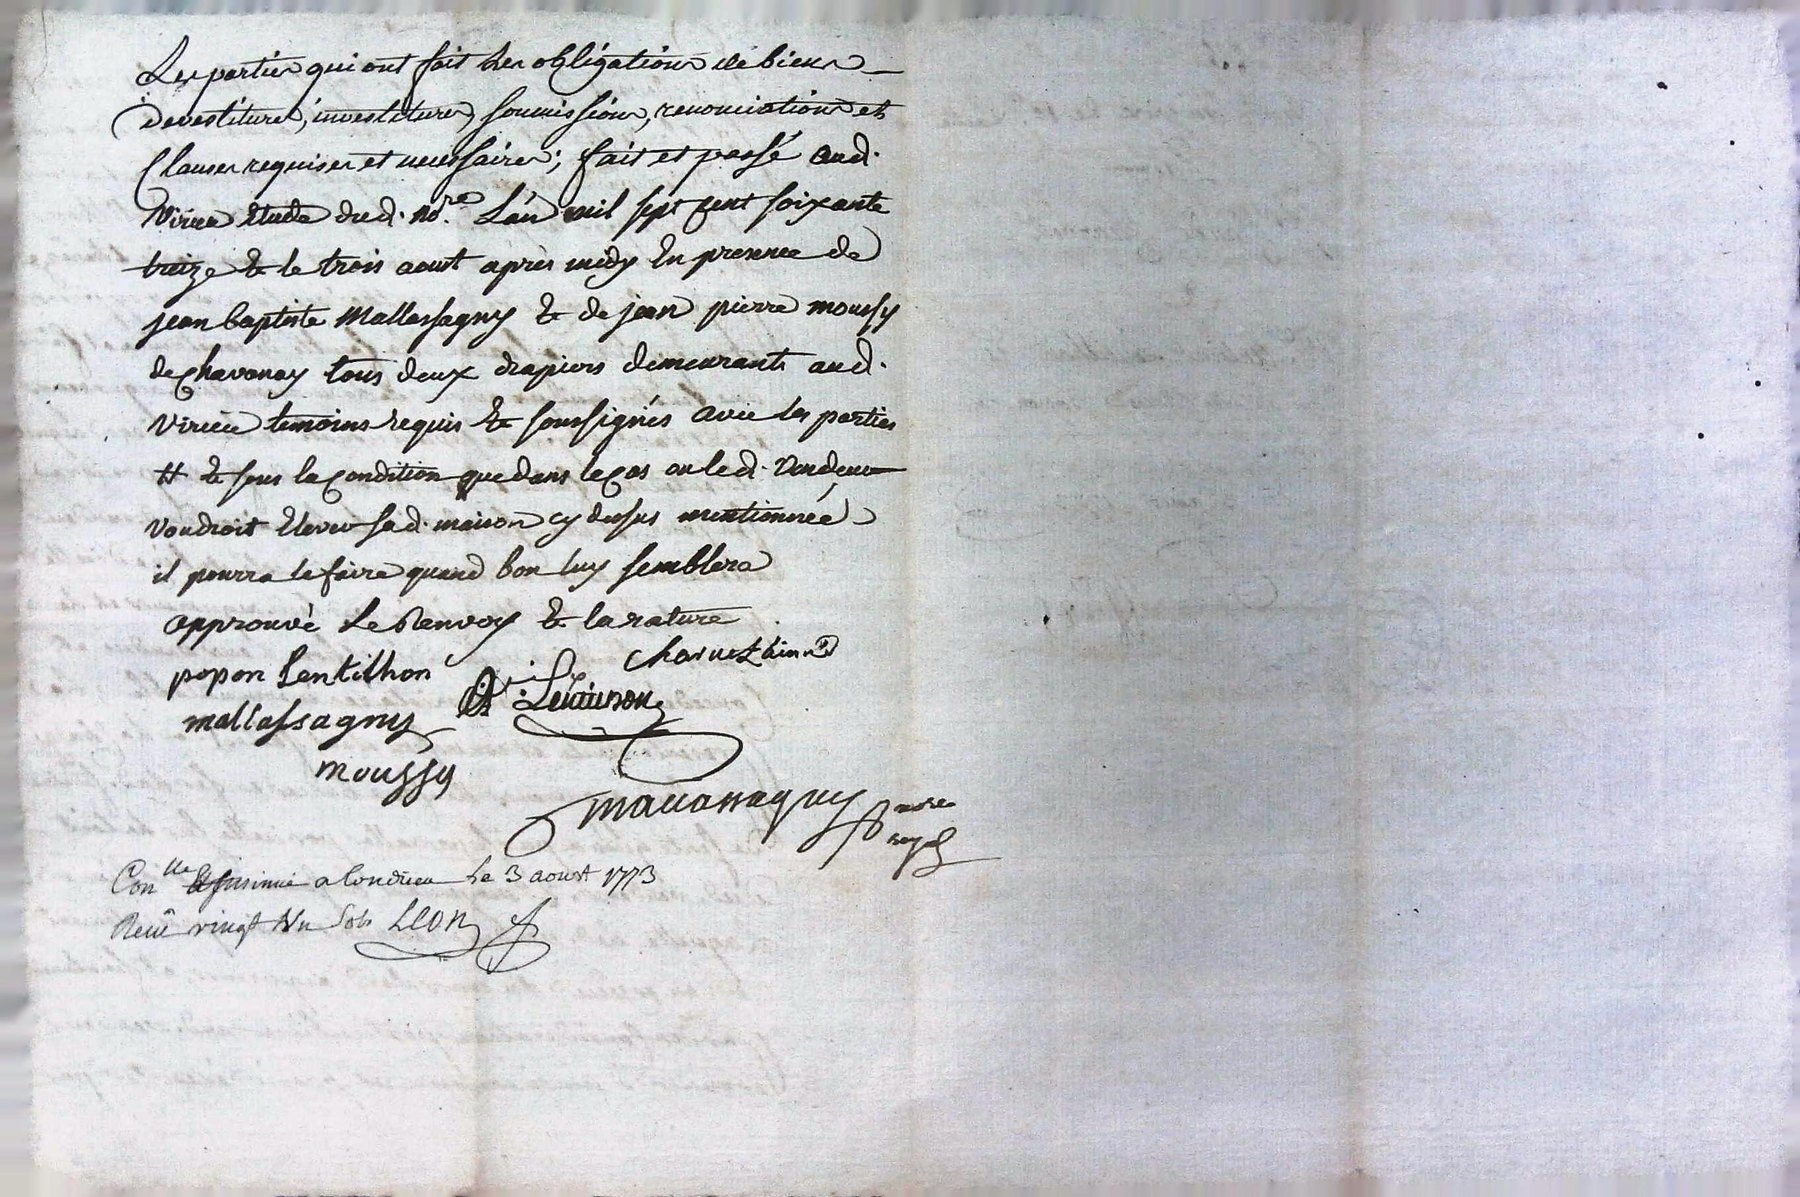 Les parties qui ont fait les obligations de biens
devestitures, investitures, soumissions, renonciations et
Clauses requises et necessaires; fait et passé aud.
Virieu étude dud. no.re L'an mil sept cent soixante
treize & le trois aoust après midy En presence de
jean baptiste Mallassagny & de jean pierre moussy
de Chavanay tous deux drapiers demeurants aud.
Virieu temoins requis & soussignés avec les parties
# & sous la condition que dans le cas ou led. Vendeur
voudroit Elever sad. maison cy dessus mentionnée
il pourra le faire quand bon luy semblera
approuvé Le Renvoy & la rature
popon Lentilhon Charvet
mallassagny
moussy
Mallassagny
Con.lle & insinué a Condrieu le 3 aoust 1773
Receu vingt Un sols LEON